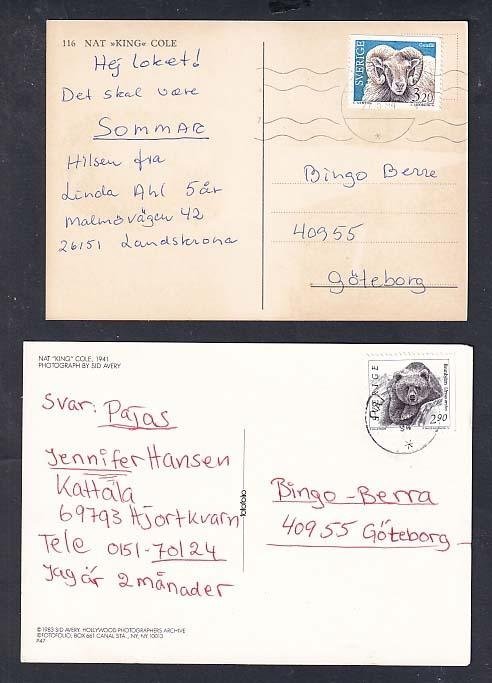 116 NAT »KING« COLE
Hej loket!
Det skal være
SOMMAR
Hilsen fra
Linda Ahl 5år
Malmøvägen 42
26151 Landskrona
SVERIGE
3,20
Bingo Berre
40955
Göteborg
NAT "KING" COLE, 1941
PHOTOGRAPH BY SID AVERY
Svar: Pajas
Jennifer Hansen
Kattala
69793 Hjortkvarn
Tele 0151-70124
Jag är 2 månader
fotofolio
SVERIGE
2,90
Bingo-Berra
40955 Göteborg
©1983 SID AVERY. HOLLYWOOD PHOTOGRAPHERS ARCHIVE
©FOTOFOLIO, BOX 661 CANAL STA., NY, NY 10013
P47